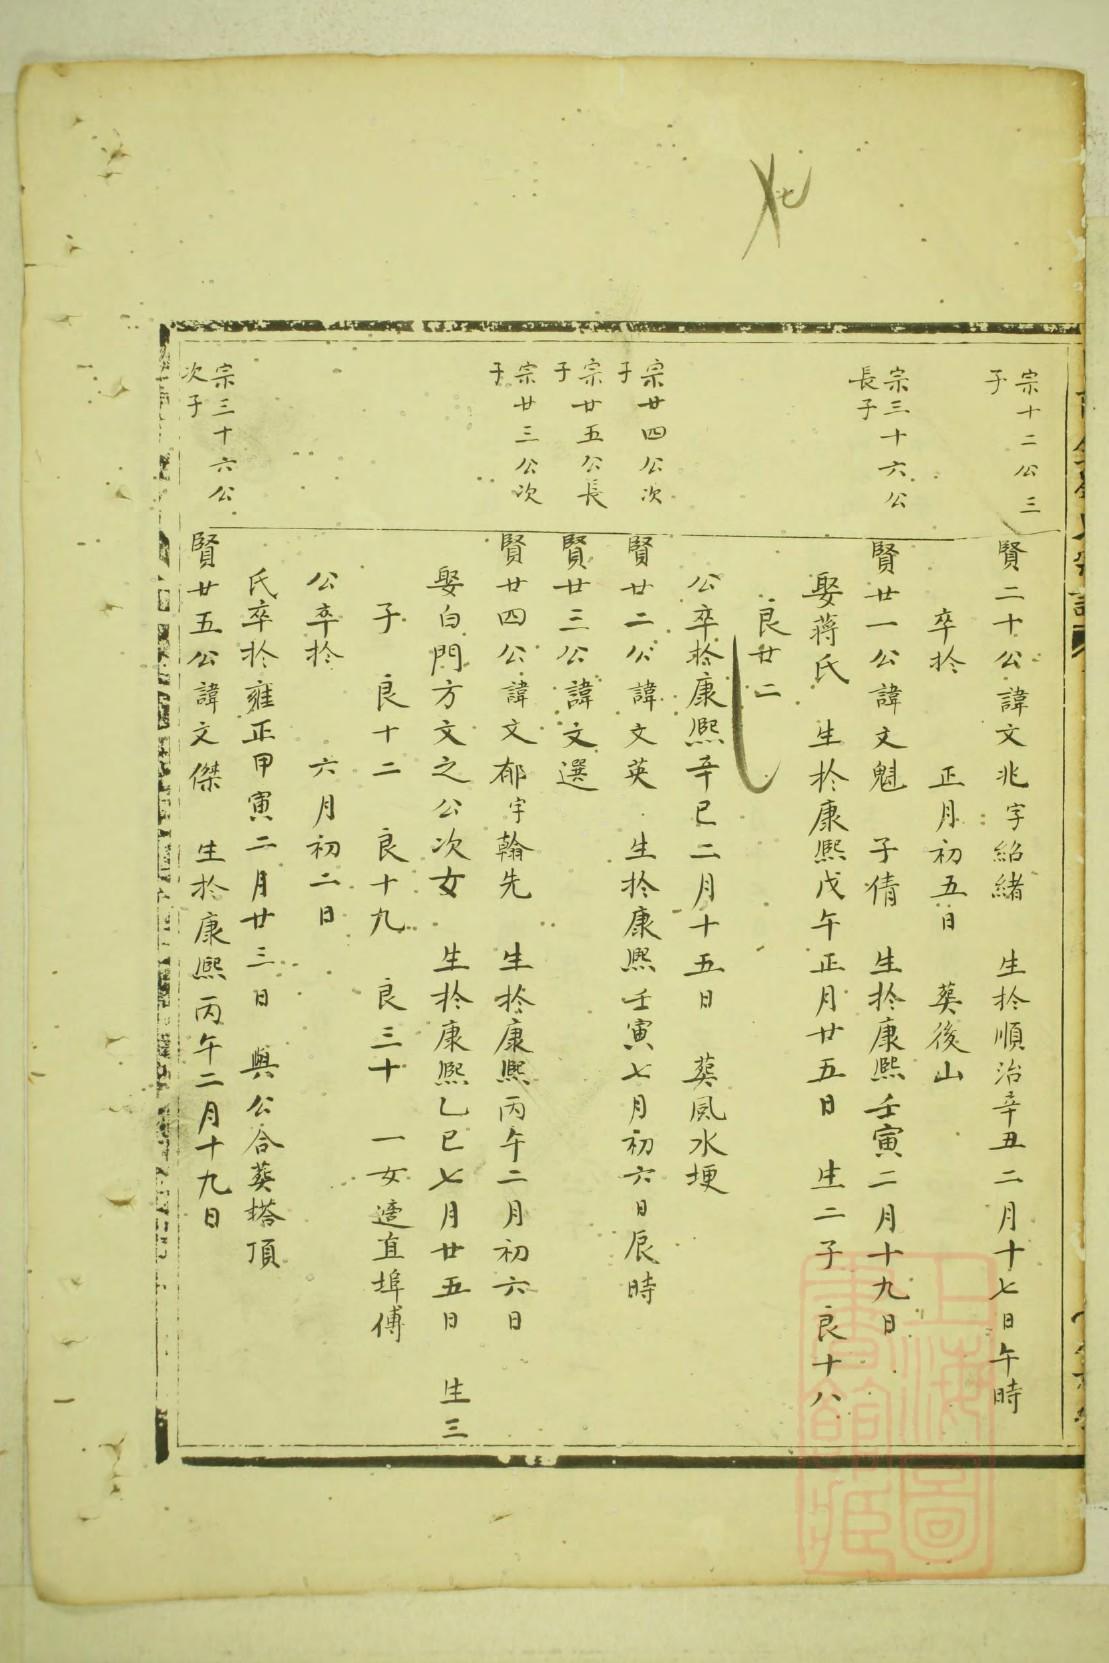 宗十二公三
子
賢二十公諱文兆字紹緒 生扵順治辛丑二月十七日午時
卒扵 正月初五日 葵後山
宗三十六公
長子
賢廿一公諱文魁 子倩 生扵康熙壬寅二月十九日
娶蔣氏 生扵康熙戊午正月廿五日 生二子 良十八
良廿二
公卒扵康熙辛巳二月十五日 葵風水埂
宗廿四公次
子
賢廿二公諱文英 生扵康熙壬寅七月初六日辰時
宗廿五公長
子
賢廿三公諱文選
宗廿三公次
子
賢廿四公諱文郁字翰先 生扵康熙丙午二月初六日
娶白門方文之公次女 生扵康熙乙巳七月廿五日 生三
子 良十二 良十九 良三十 一女適直埠傅
公卒扵 六月初二日
氏卒扵雍正甲寅二月廿三日 與公合葵塔頂
宗三十六公
次子
賢廿五公諱文傑 生扵康熙丙午二月十九日
上海圖
書館藏